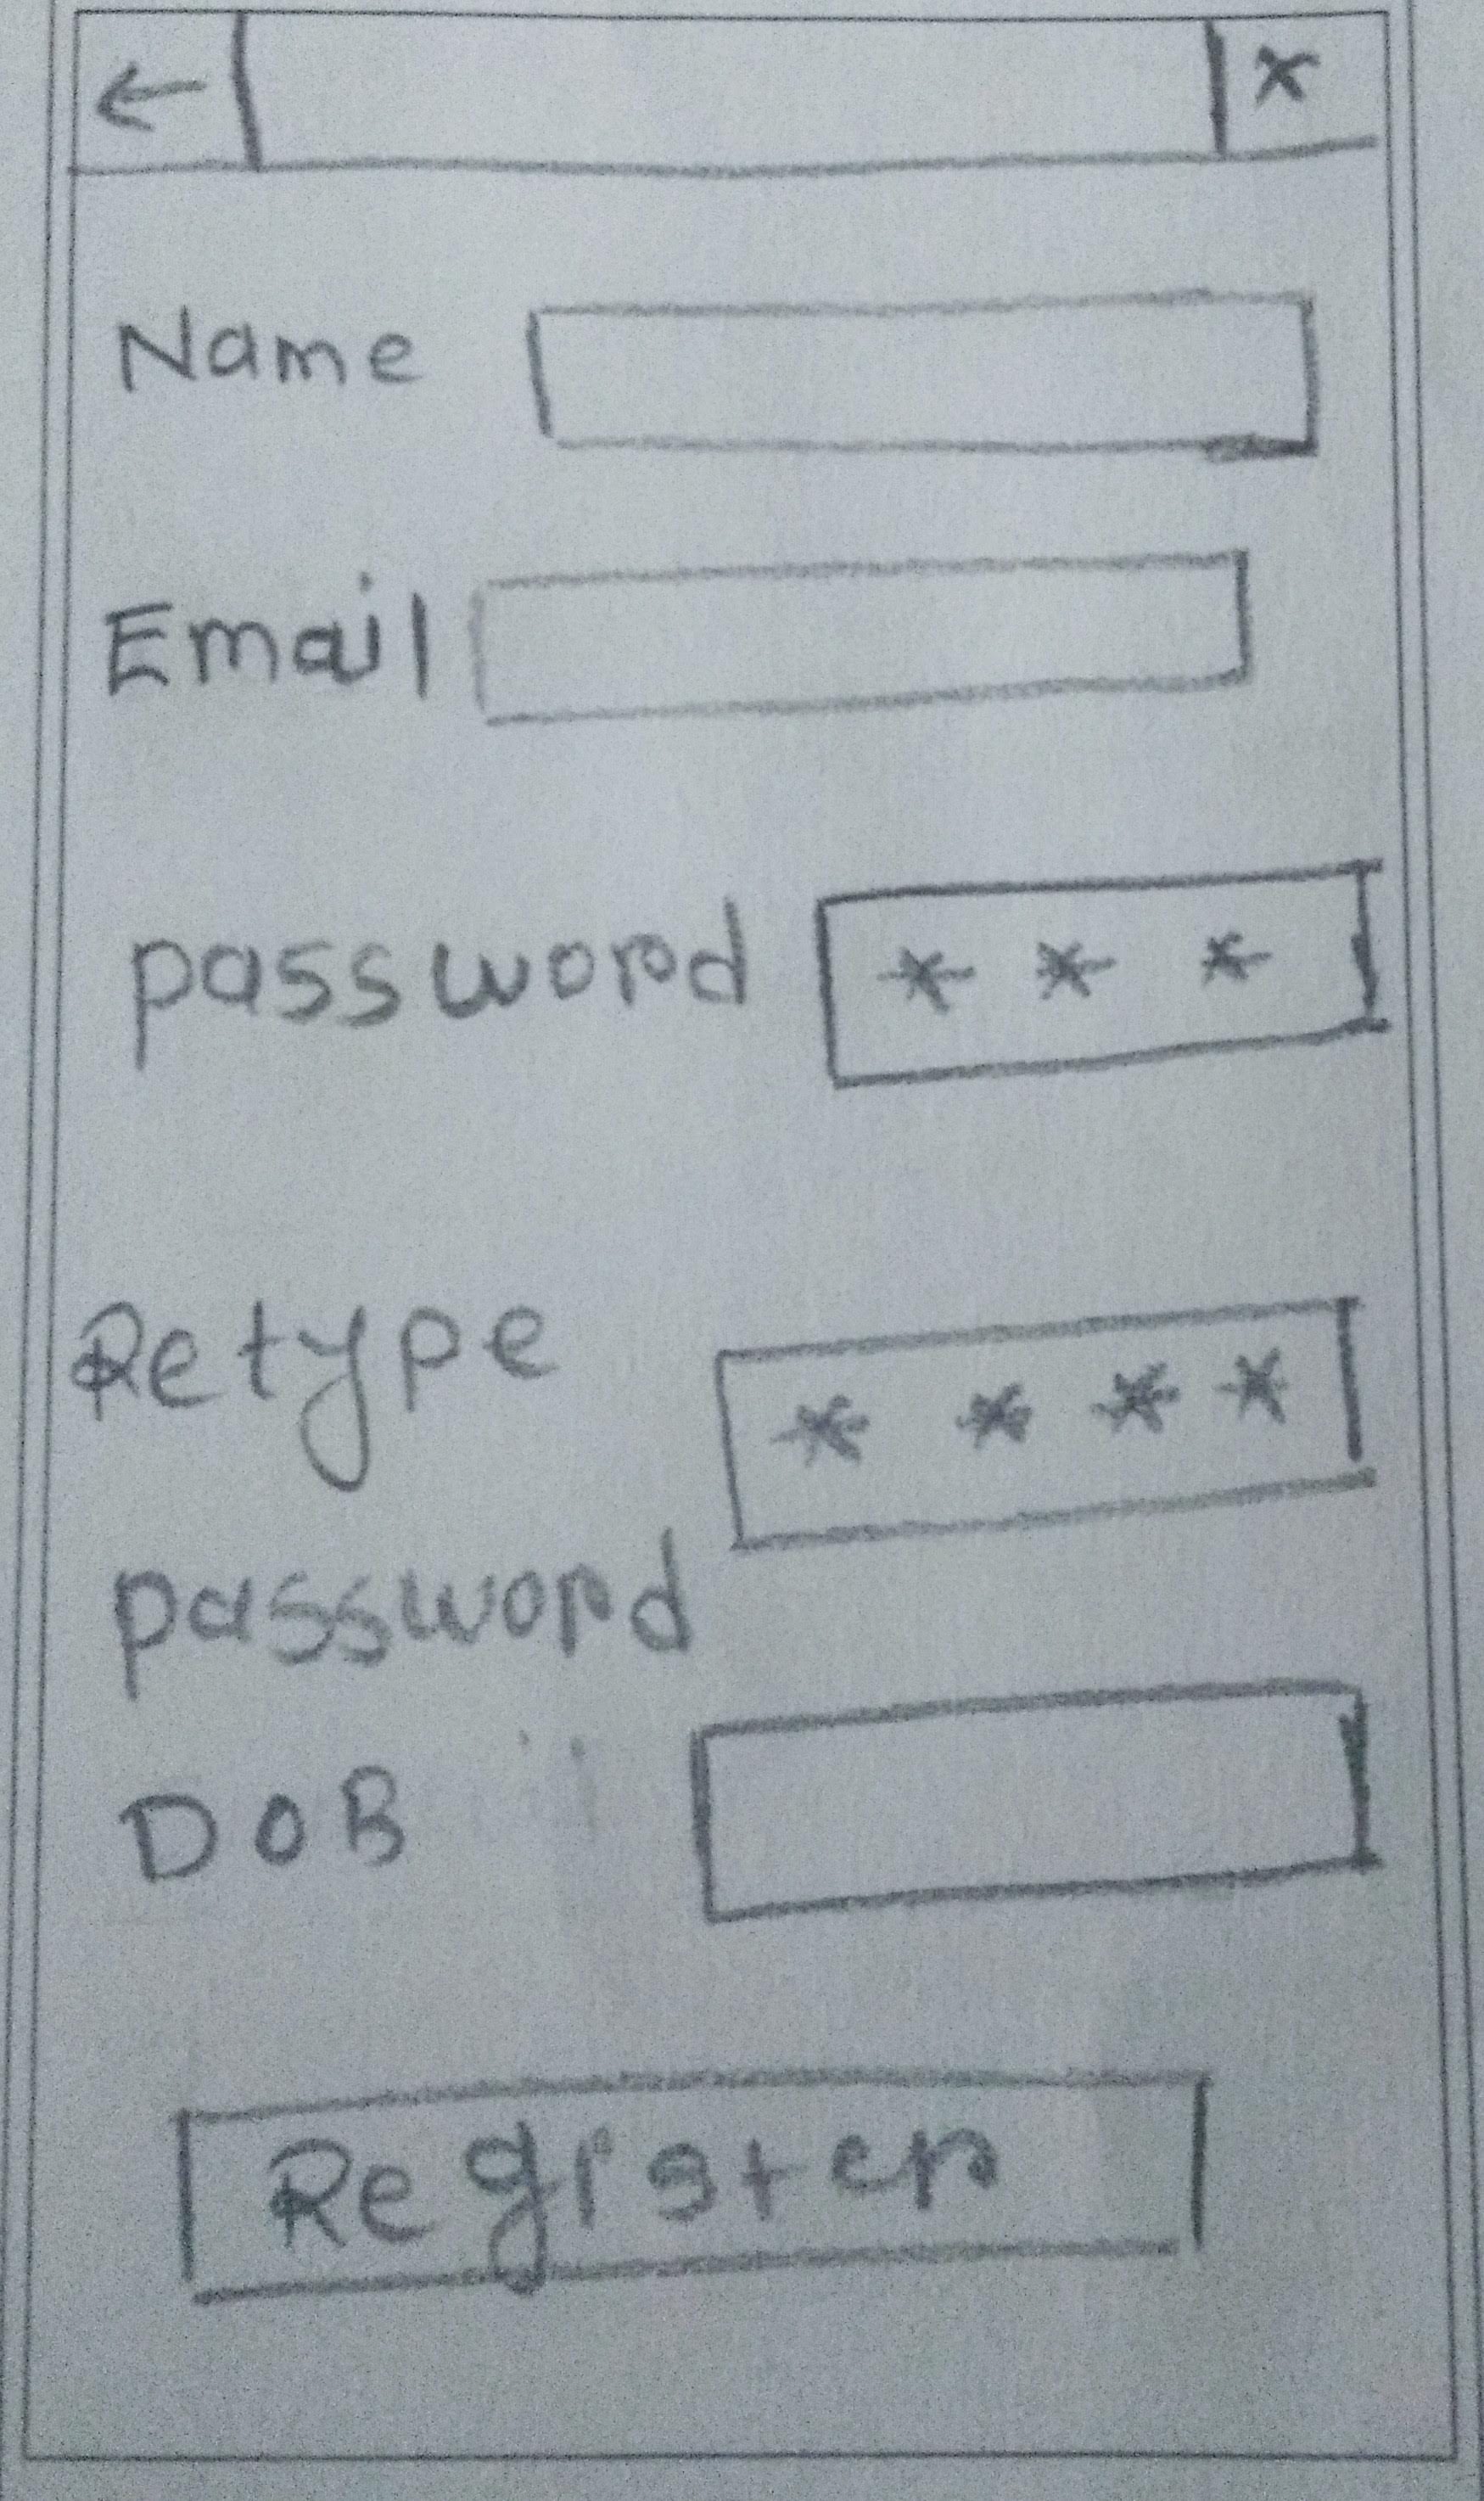 ← x
Name
Email
password * * *
Retype * * * *
password
DOB
Register